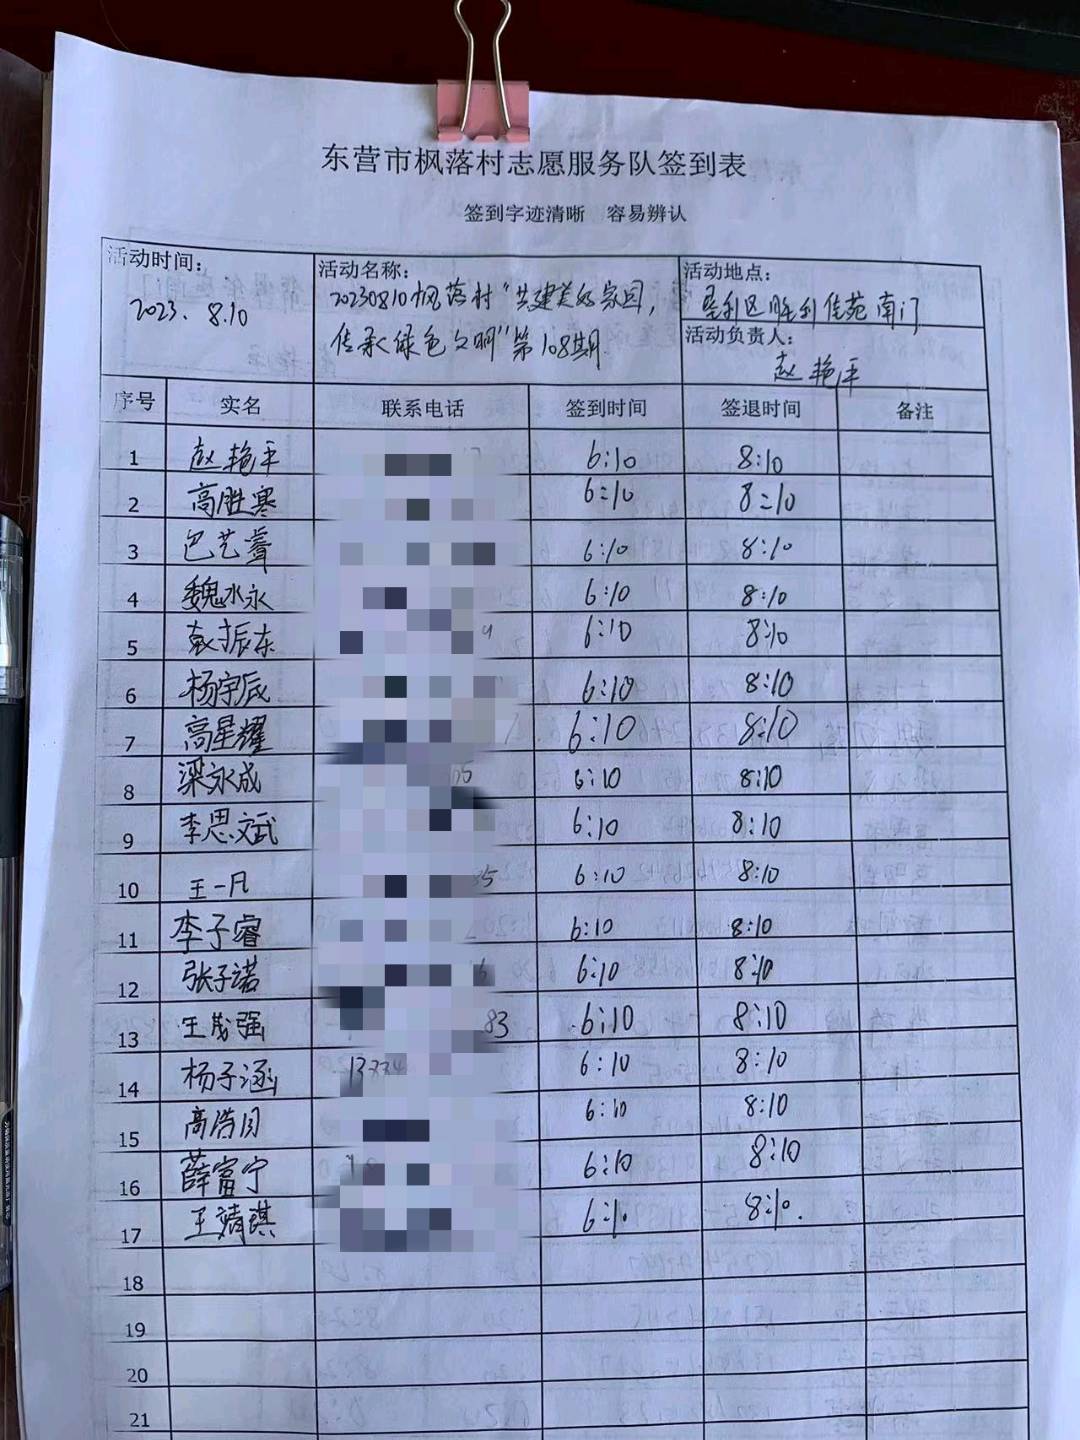 东营市枫落村志愿服务队签到表
签到字迹清晰 容易辨认
活动时间: 2023. 8.10
活动名称: 20230810枫落村“共建美好家园,
传承绿色文明”第108期
活动地点: 垦利区胜利佳苑南门
活动负责人: 赵艳平
序号 实名 联系电话 签到时间 签退时间 备注
1 赵艳平 6:10 8:10
2 高胜寒 6:10 8:10
3 6:10 8:10
4 魏水永 6:10 8:10
5 振东 6:10 8:10
6 杨宇辰 6:10 8:10
7 高星耀 6:10 8:10
8 梁永成 6:10 8:10
9 李思文武 6:10 8:10
10 王一凡 35 6:10 8:10
11 李子睿 6:10 8:10
12 张子诺 6:10 8:10
13 王茂强 83 6:10 8:10
14 杨子涵 6:10 8:10
15 高浩月 6:10 8:10
16 薛富宁 6:10 8:10
17 王靖琪 6:10 8:10.
18
19
20
21